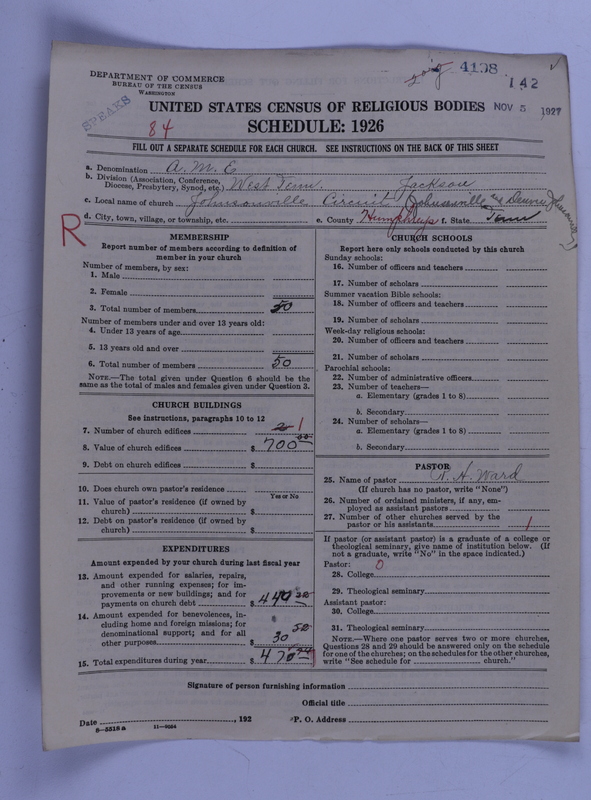 4198
142
DEPARTMENT OF COMMERCE
BUREAU OF THE CENSUS
WASHINGTON
SPEAKS
UNITED STATES CENSUS OF RELIGIOUS BODIES
NOV 5 1927
84
SCHEDULE: 1926
FILL OUT A SEPARATE SCHEDULE FOR EACH CHURCH. SEE INSTRUCTIONS ON THE BACK OF THIS SHEET
a. Denomination A. M. E
b. Division (Association, Conference, Diocese, Presbytery, Synod, etc.) West Tenn. Jackson
c. Local name of church Johnsonville Circuit Johnsonville
d. City, town, village, or township, etc. e. County Humphreys f. State Tenn
R
MEMBERSHIP
Report number of members according to definition of
member in your church
Number of members, by sex:
1. Male
2. Female
3. Total number of members 50
Number of members under and over 13 years old:
4. Under 13 years of age
5. 13 years old and over
6. Total number of members 50
NOTE.—The total given under Question 6 should be
same as the total of males and females given under Question 3.
CHURCH BUILDINGS
See instructions, paragraphs 10 to 12
7. Number of church edifices 2 1
8. Value of church edifices $ 700 00
9. Debt on church edifices $
10. Does church own pastor's residence
Yes or No
11. Value of pastor's residence (if owned by
church) $
12. Debt on pastor's residence (if owned by
church) $
EXPENDITURES
Amount expended by your church during last fiscal year
13. Amount expended for salaries, repairs,
and other running expenses; for im-
provements or new buildings; and for
payments on church debt $ 440
14. Amount expended for benevolences, in-
cluding home and foreign missions; for
denominational support; and for all
other purposes $ 30 52
15. Total expenditures during year $ 470
CHURCH SCHOOLS
Report here only schools conducted by this church
Sunday schools:
16. Number of officers and teachers
17. Number of scholars
Summer vacation Bible schools:
18. Number of officers and teachers
19. Number of scholars
Week-day religious schools:
20. Number of officers and teachers
21. Number of scholars
Parochial schools:
22. Number of administrative officers
23. Number of teachers—
a. Elementary (grades 1 to 8)
b. Secondary
24. Number of scholars—
a. Elementary (grades 1 to 8)
b. Secondary
PASTOR
25. Name of pastor H. Ward
(If church has no pastor, write "None")
26. Number of ordained ministers, if any, em-
ployed as assistant pastors
27. Number of other churches served by the
pastor or his assistants 1
If pastor (or assistant pastor) is a graduate of a college or
theological seminary, give name of institution below. (If
not a graduate, write "No" in the space indicated.)
Pastor: 0
28. College
29. Theological seminary
Assistant pastor:
30. College
31. Theological seminary
NOTE.—Where one pastor serves two or more churches,
Questions 28 and 29 should be answered only on the schedule
for one of the churches; on the schedules for the other churches,
write "See schedule for church."
Signature of person furnishing information
Official title
Date , 192 P. O. Address
8—5518 a 11—9034